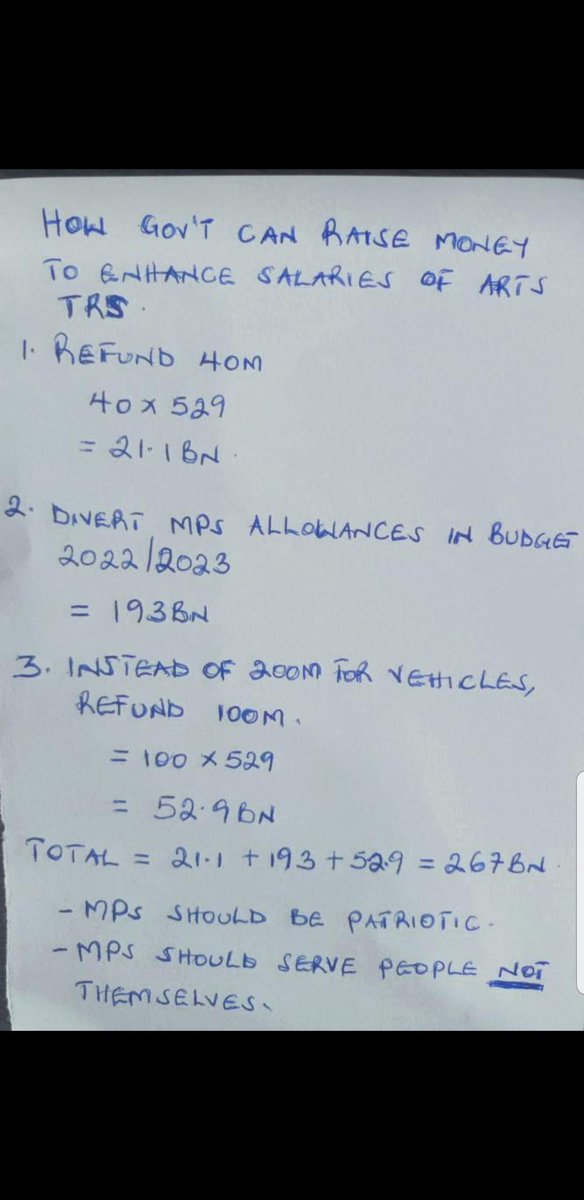 HOW GOV'T CAN RAISE MONEY
TO ENHANCE SALARIES OF ARTS
TRS.
1. REFUND 40M
40 x 529
= 21.1 BN.
2. DIVERT MPS ALLOWANCES IN BUDGET
2022/2023
= 193BN
3. INSTEAD OF 200M FOR VEHICLES,
REFUND 100M.
= 100 x 529
= 52.9BN
TOTAL = 21.1 + 193 + 52.9 = 267BN.
- MPS SHOULD BE PATRIOTIC.
- MPS SHOULD SERVE PEOPLE NOT
THEMSELVES.